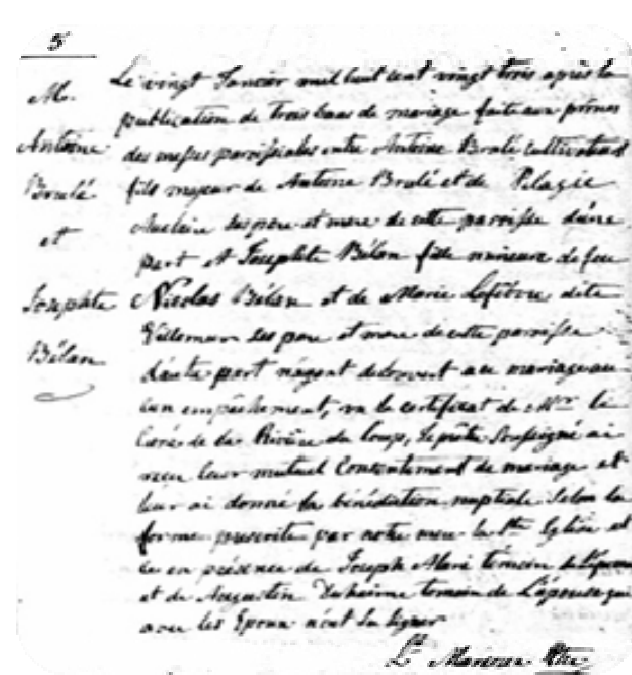 5
M.
Antoine
Brulé
et
Josephte
Bélan
Le vingt Janvier mil huit cent vingt trois après la
publication de trois bans de mariage faite aux prônes
des messes paroissiales entre Antoine Brulé cultivateur
fils majeur de Antoine Brulé et de Pelagie
Auclaire ses père et mere de cette paroisse d'une
part et Josephte Bélan fille mineure de feu
Nicolas Bélan et de Marie Lefebvre dite
Villemur ses pere et mere de cette paroisse
d'autre part n'ayant découvert au mariage au-
cun empêchement, vu le certificat de Mr. le
Curé de la Rivière du Loup, Je prêtre soussigné ai
reçu leur mutuel Consentement de mariage et
leur ai donné la bénédiction nuptiale selon la
forme prescrite par notre mere la Ste Eglise et
ce en présence de Joseph témoin de l'époux
et de Augustin temoin de l'épouse qui
avec les Epoux n'ont su signer
Ptre